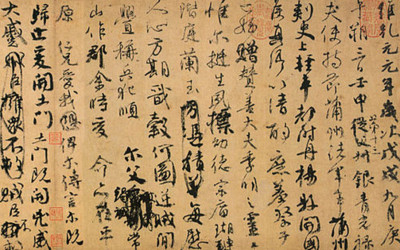 維乾元元年歲次戊戌九月庚
午朔三日壬申第十三叔銀青光祿
夫使持節蒲州諸軍事蒲州
刺史上輕車都尉丹楊縣開國
侯真卿以清酌庶羞祭于
亡姪贈贊善大夫季明之靈
惟爾挺生夙標幼德宗廟瑚璉
階庭蘭玉方憑積善每慰
人心方期戩穀何圖逆賊閒
釁稱兵犯順
爾父竭誠常
山作郡余時受命亦在平
原仁兄愛我俾爾傳言爾既
歸止爰開土門土門既開凶威
大蹙賊臣擁眾不救